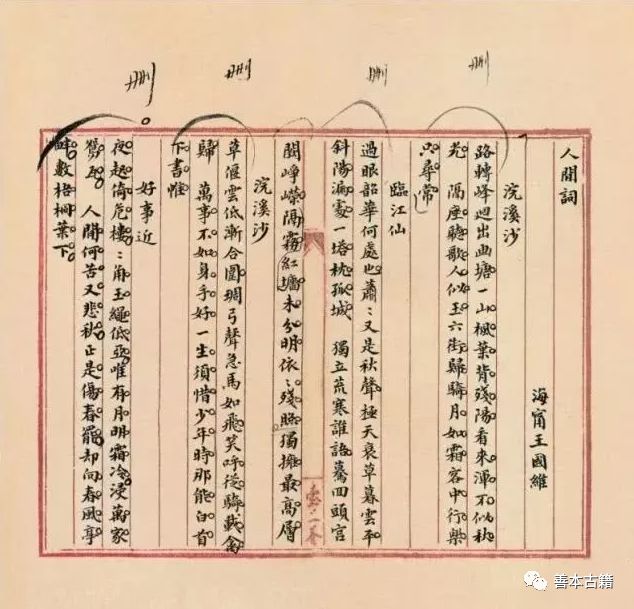 刪
刪
刪
刪
人間詞
海甯王國維
浣溪沙
路轉峰迴出曲塘一山楓葉背殘陽看來渾不似秋
光 隔座聽歌人似玉六街歸騎月如霜客中行樂
只尋常
臨江仙
過眼韶華何處也蕭〻又是秋聲極天衰草暮雲平
斜陽漏處一塔枕孤城 獨立荒寒誰語驀回頭宮
闕崢嶸隔霧紅墻未分明依〻殘照獨擁最高層
浣溪沙
草偃雲低漸合圍琱弓聲急馬如飛笑呼從騎載禽
歸 萬事不如身手好一生須惜少年時那能白首
下書帷
好事近
夜起倚危樓〻角玉繩低亞唯有月明霜冷浸萬家
鴛瓦 人間何苦又悲秋正是傷春罷却向春風亭
畔數梧桐葉下
善本古籍